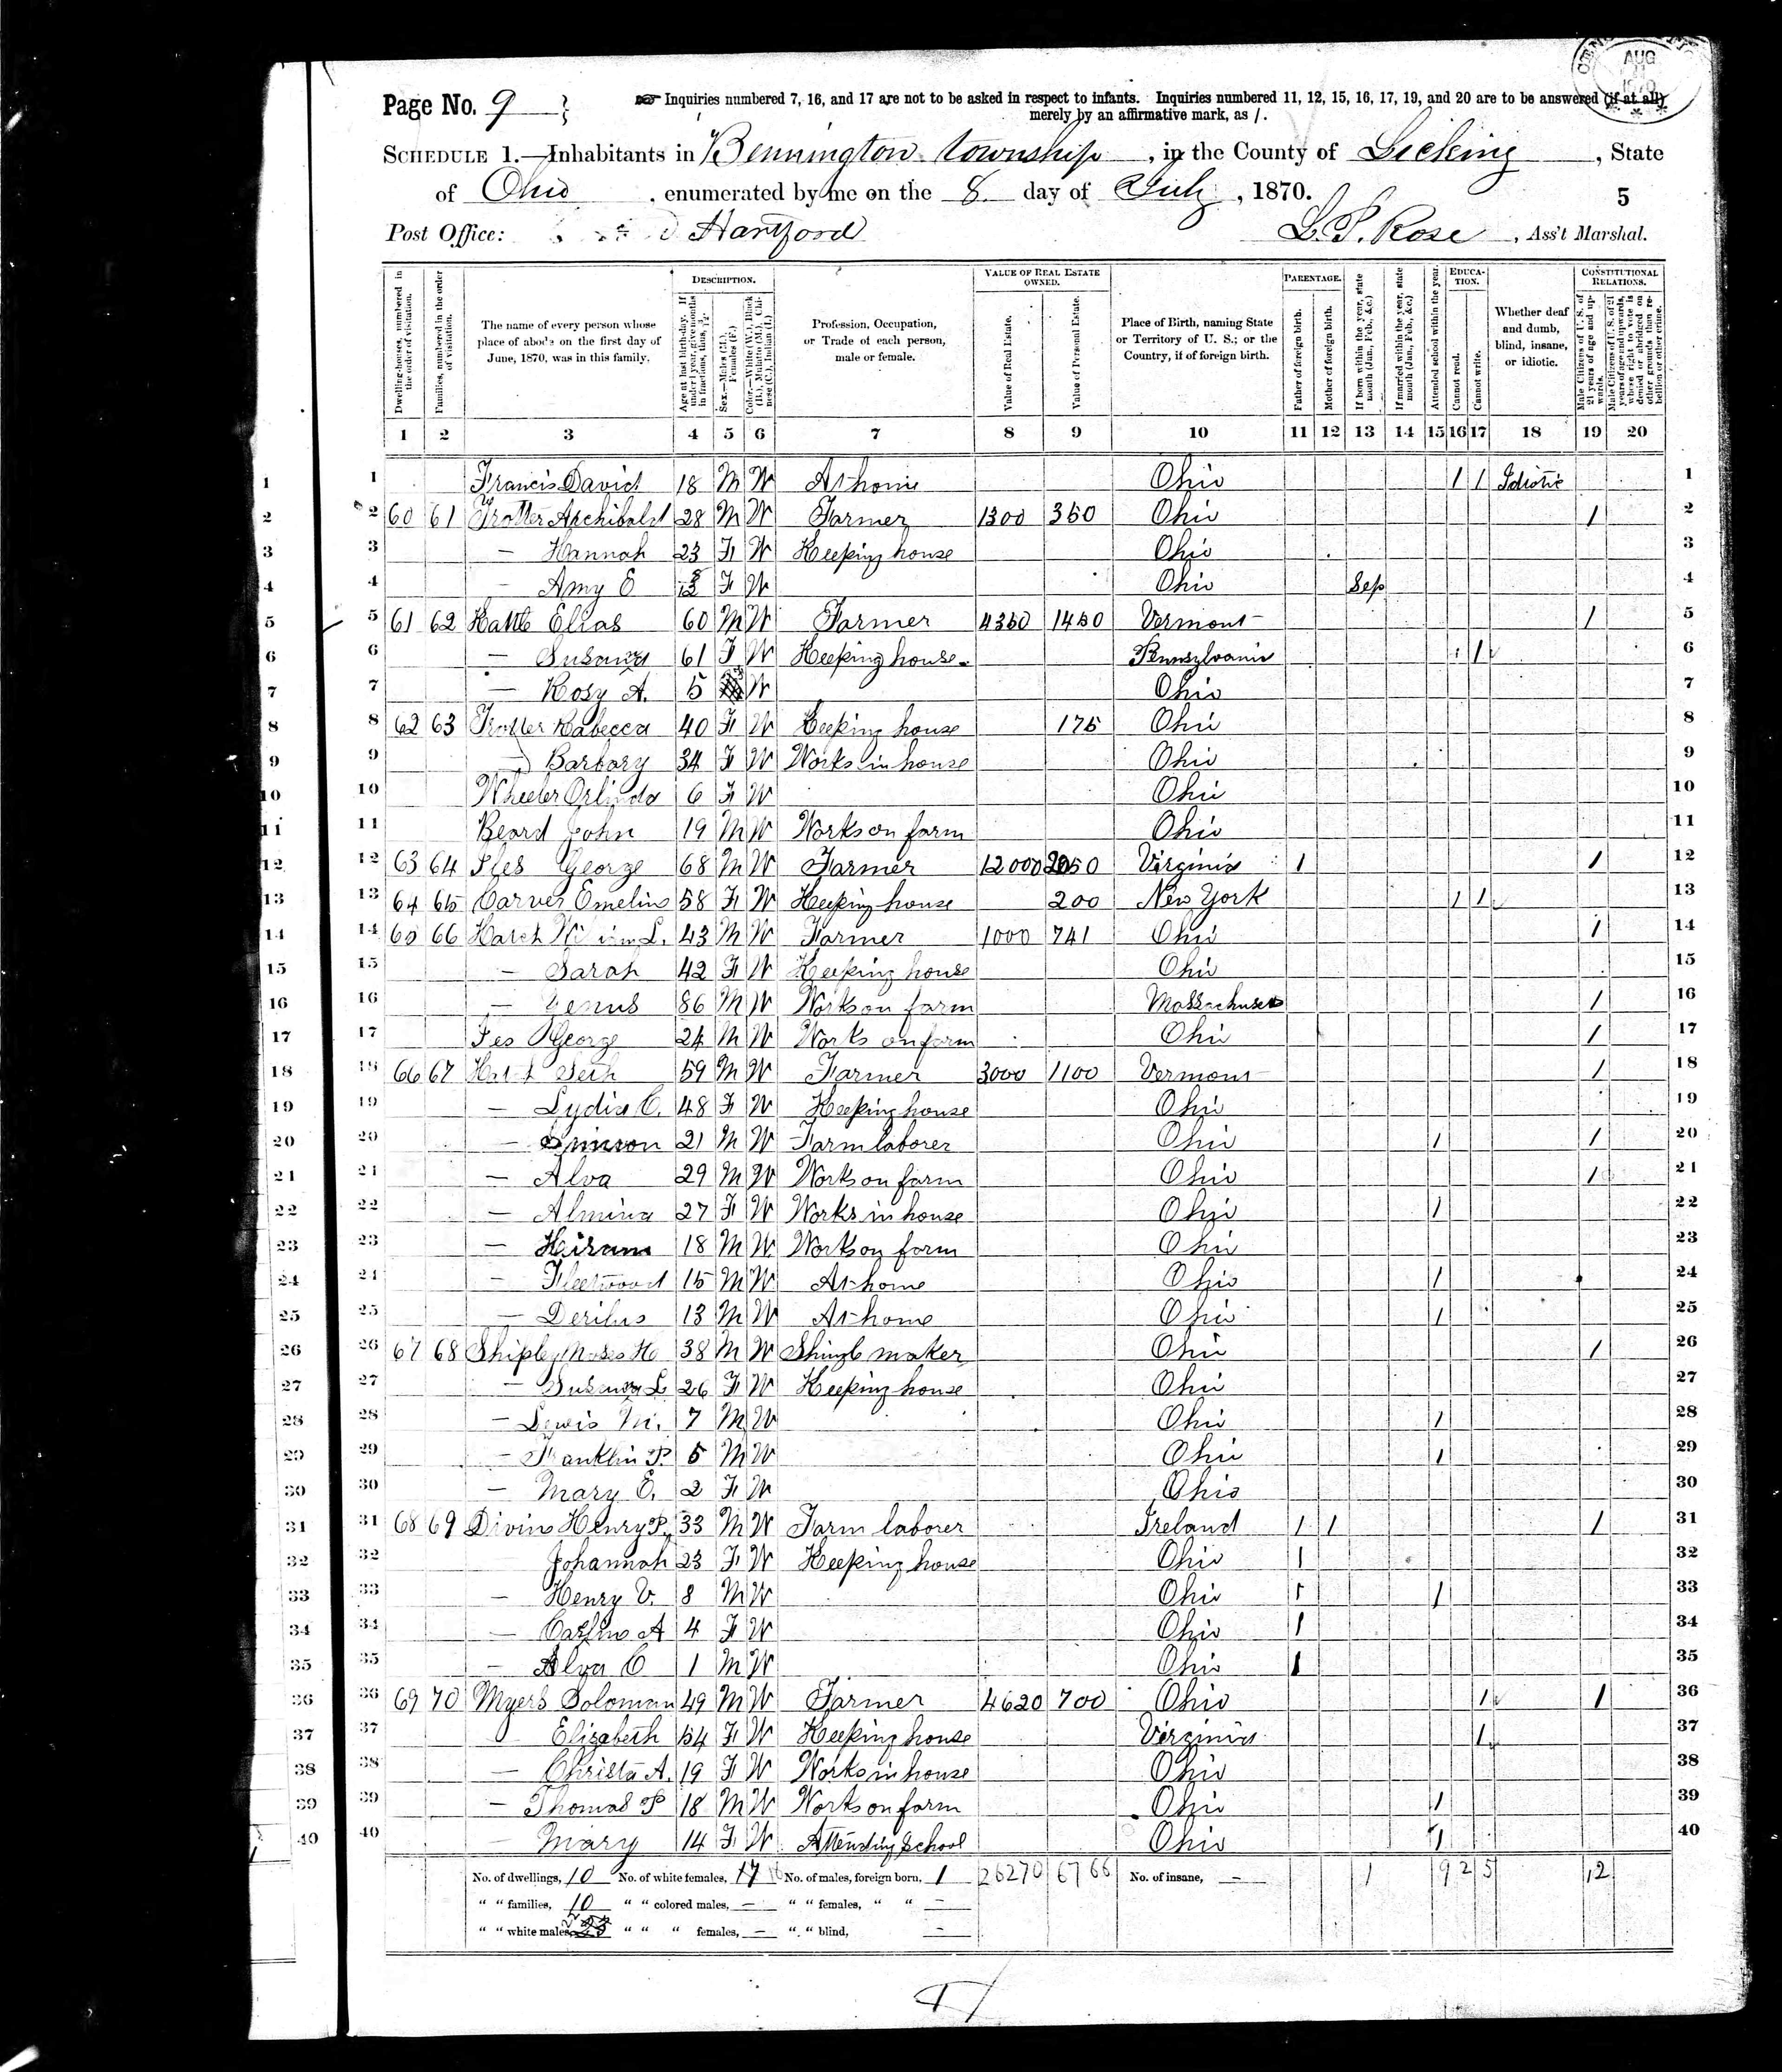 AUG
1870
Page No. 9
Inquiries numbered 7, 16, and 17 are not to be asked in respect to infants. Inquiries numbered 11, 12, 15, 16, 17, 19, and 20 are to be answered (if at all)
merely by an affirmative mark, as /.
SCHEDULE 1.—Inhabitants in Bennington township, in the County of Licking, State
of Ohio, enumerated by me on the 8 day of July, 1870.
5
Post Office: Hartford
L. P. Rose, Ass't Marshal.
Dwelling-houses, numbered in the order of visitation.
Families, numbered in the order of visitation.
The name of every person whose place of abode on the first day of June, 1870, was in this family.
DESCRIPTION.
Age at last birth-day. If under 1 year, give months in fractions, thus, 3/12.
Sex.—Males (M.), Females (F.)
Color.—White (W.), Black (B.), Mulatto (M.), Chinese (C.), Indian (I.)
Profession, Occupation, or Trade of each person, male or female.
VALUE OF REAL ESTATE OWNED.
Value of Real Estate.
Value of Personal Estate.
Place of Birth, naming State or Territory of U. S.; or the Country, if of foreign birth.
PARENTAGE.
Father of foreign birth.
Mother of foreign birth.
If born within the year, state month (Jan., Feb., &c.)
If married within the year, state month (Jan., Feb., &c.)
Attended school within the year.
EDUCATION.
Cannot read.
Cannot write.
Whether deaf and dumb, blind, insane, or idiotic.
CONSTITUTIONAL RELATIONS.
Male Citizens of U. S. of 21 years of age and upwards.
Male Citizens of U. S. of 21 years of age and upwards, whose right to vote is denied or abridged on other grounds than rebellion or other crime.
1 2 3 4 5 6 7 8 9 10 11 12 13 14 15 16 17 18 19 20
1 1 Francis David 18 M W At home Ohio 1 1 Idiotic 1
2 2 60 61 Trotter Archibald 28 M W Farmer 1300 350 Ohio 1 2
3 3 — Hannah 23 F W Keeping house Ohio 3
4 4 — Amy E F W Ohio Sep 4
5 5 61 62 Elias 60 M W Farmer 4350 1450 Vermont 1 5
6 6 — 61 F W Keeping house Pennsylvania 1 6
7 7 — Rosy A. 5 W Ohio 7
8 8 62 63 Trotter Rabecca 40 F W Keeping house 175 Ohio 8
9 9 — Barbary 34 F W Works in house Ohio 9
10 10 Wheeler Orlinda 6 F W Ohio 10
11 11 Beard John 19 M W Works on farm Ohio 11
12 12 63 64 Iles George 68 M W Farmer 12000 2050 Virginia 1 1 12
13 13 64 65 Carver Emeline 58 F W Keeping house 200 New York 1 1 13
14 14 65 66 Hatch L. 43 M W Farmer 1000 741 Ohio 1 14
15 15 — Sarah 42 F W Keeping house Ohio 15
16 16 — 86 M W Works on farm Massachusets 1 16
17 17 George 24 M W Works on farm Ohio 1 17
18 18 66 67 Seth 59 M W Farmer 3000 1100 Vermont 1 18
19 19 — Lydia C. 48 F W Keeping house Ohio 19
20 20 — 21 M W Farm laborer Ohio 1 1 20
21 21 — Alva 29 M W Works on farm Ohio 1 21
22 22 — Almina 27 F W Works in house Ohio 1 22
23 23 — Hiram 18 M W Works on farm Ohio 23
24 24 — Fleetwood 15 M W At home Ohio 1 24
25 25 — 13 M W At home Ohio 1 25
26 26 67 68 Shipley Moses H 38 M W Shingle maker Ohio 1 26
27 27 — L 26 F W Keeping house Ohio 27
28 28 — Lewis M. 7 M W Ohio 1 28
29 29 — Franklin P. 5 M W Ohio 1 29
30 30 — Mary E. 2 F W Ohio 30
31 31 68 69 Divins Henry P. 33 M W Farm laborer Ireland 1 1 1 31
32 32 Johannah 23 F W Keeping house Ohio 1 32
33 33 — Henry V. 8 M W Ohio 1 1 33
34 34 — A 4 F W Ohio 1 34
35 35 — Alva C 1 M W Ohio 1 35
36 36 69 70 Myers Soloman 49 M W Farmer 4620 700 Ohio 1 1 36
37 37 Elizabeth 54 F W Keeping house Virginia 1 37
38 38 — Christa A. 19 F W Works in house Ohio 38
39 39 — Thomas P 18 M W Works on farm Ohio 1 39
40 40 — Mary 14 F W Attending school Ohio 1 40
No. of dwellings, 10 No. of white females, 17 No. of males, foreign born, 1 26270 6766 No. of insane, — 1 9 2 5 12
" " families, 10 " " colored males, — " " females, " " —
" " white males, " " " females, — " " blind, —